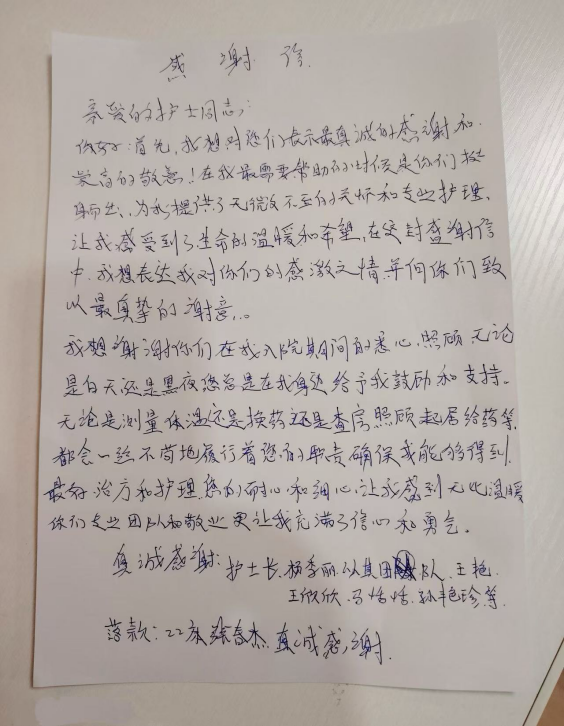 感谢信
亲爱的护士同志:
你好:首先,我想对您们表示最真诚的感谢和
崇高的敬意!在我最需要帮助的时候是你们挺
身而出,为我提供了无微不至的关怀和专业护理,
让我感受到了生命的温暖和希望,在这封感谢信
中,我想表达我对你们的感激之情并向你们致
以最真挚的谢意。
我想谢谢你们在我入院其间的悉心照顾无论
是白天还是黑夜您总是在我身边给予我鼓励和支持。
无论是测量体温还是换药还是查房照顾起居给药等,
都会一丝不苟地履行着您的职责确保我能够得到
最好治疗和护理,您的耐心和细心让我感到无比温暖
你们专业团队和敬业更让我充满了信心和勇气。
真诚感谢:护士长,杨季丽以其团队,王艳
王欣欣,马恬恬,孙艳珍等,
落款:22床 真诚感谢.